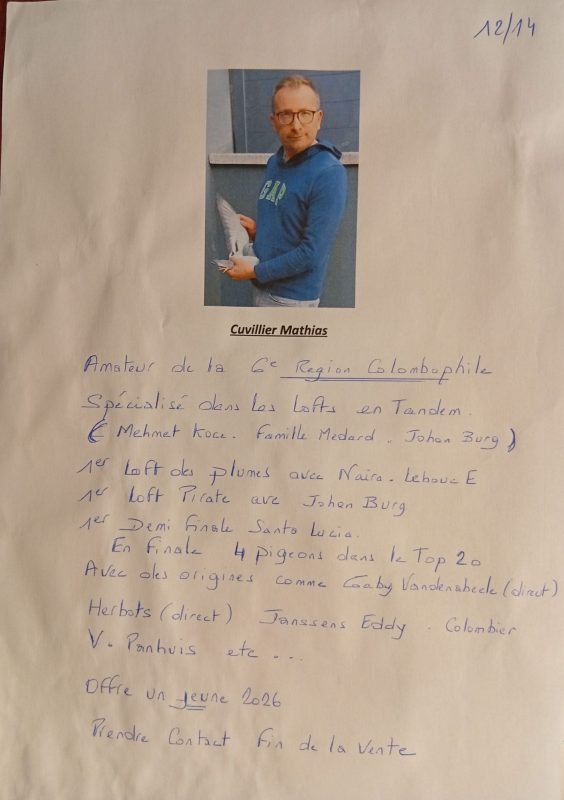 12/14
GAP
Cuvillier Mathias
Amateur de la 6e Region Colombophile
Spécialisé dans les Lofts en Tandem.
( Mehmet Koce. Famille Medard. Johan Burg )
1er Loft des plumes avec Naira. Lebouc E
1er Loft Pirate avc Johan Burg
1er Demi Finale Santa Lucia.
En Finale 4 pigeons dans le Top 20
Avec des origines comme Gaby Vandenabeele (direct)
Herbots (direct) Janssens Eddy. Colombier
V. Panhuis etc ...
Offre un jeune 2026
Prendre Contact Fin de la Vente